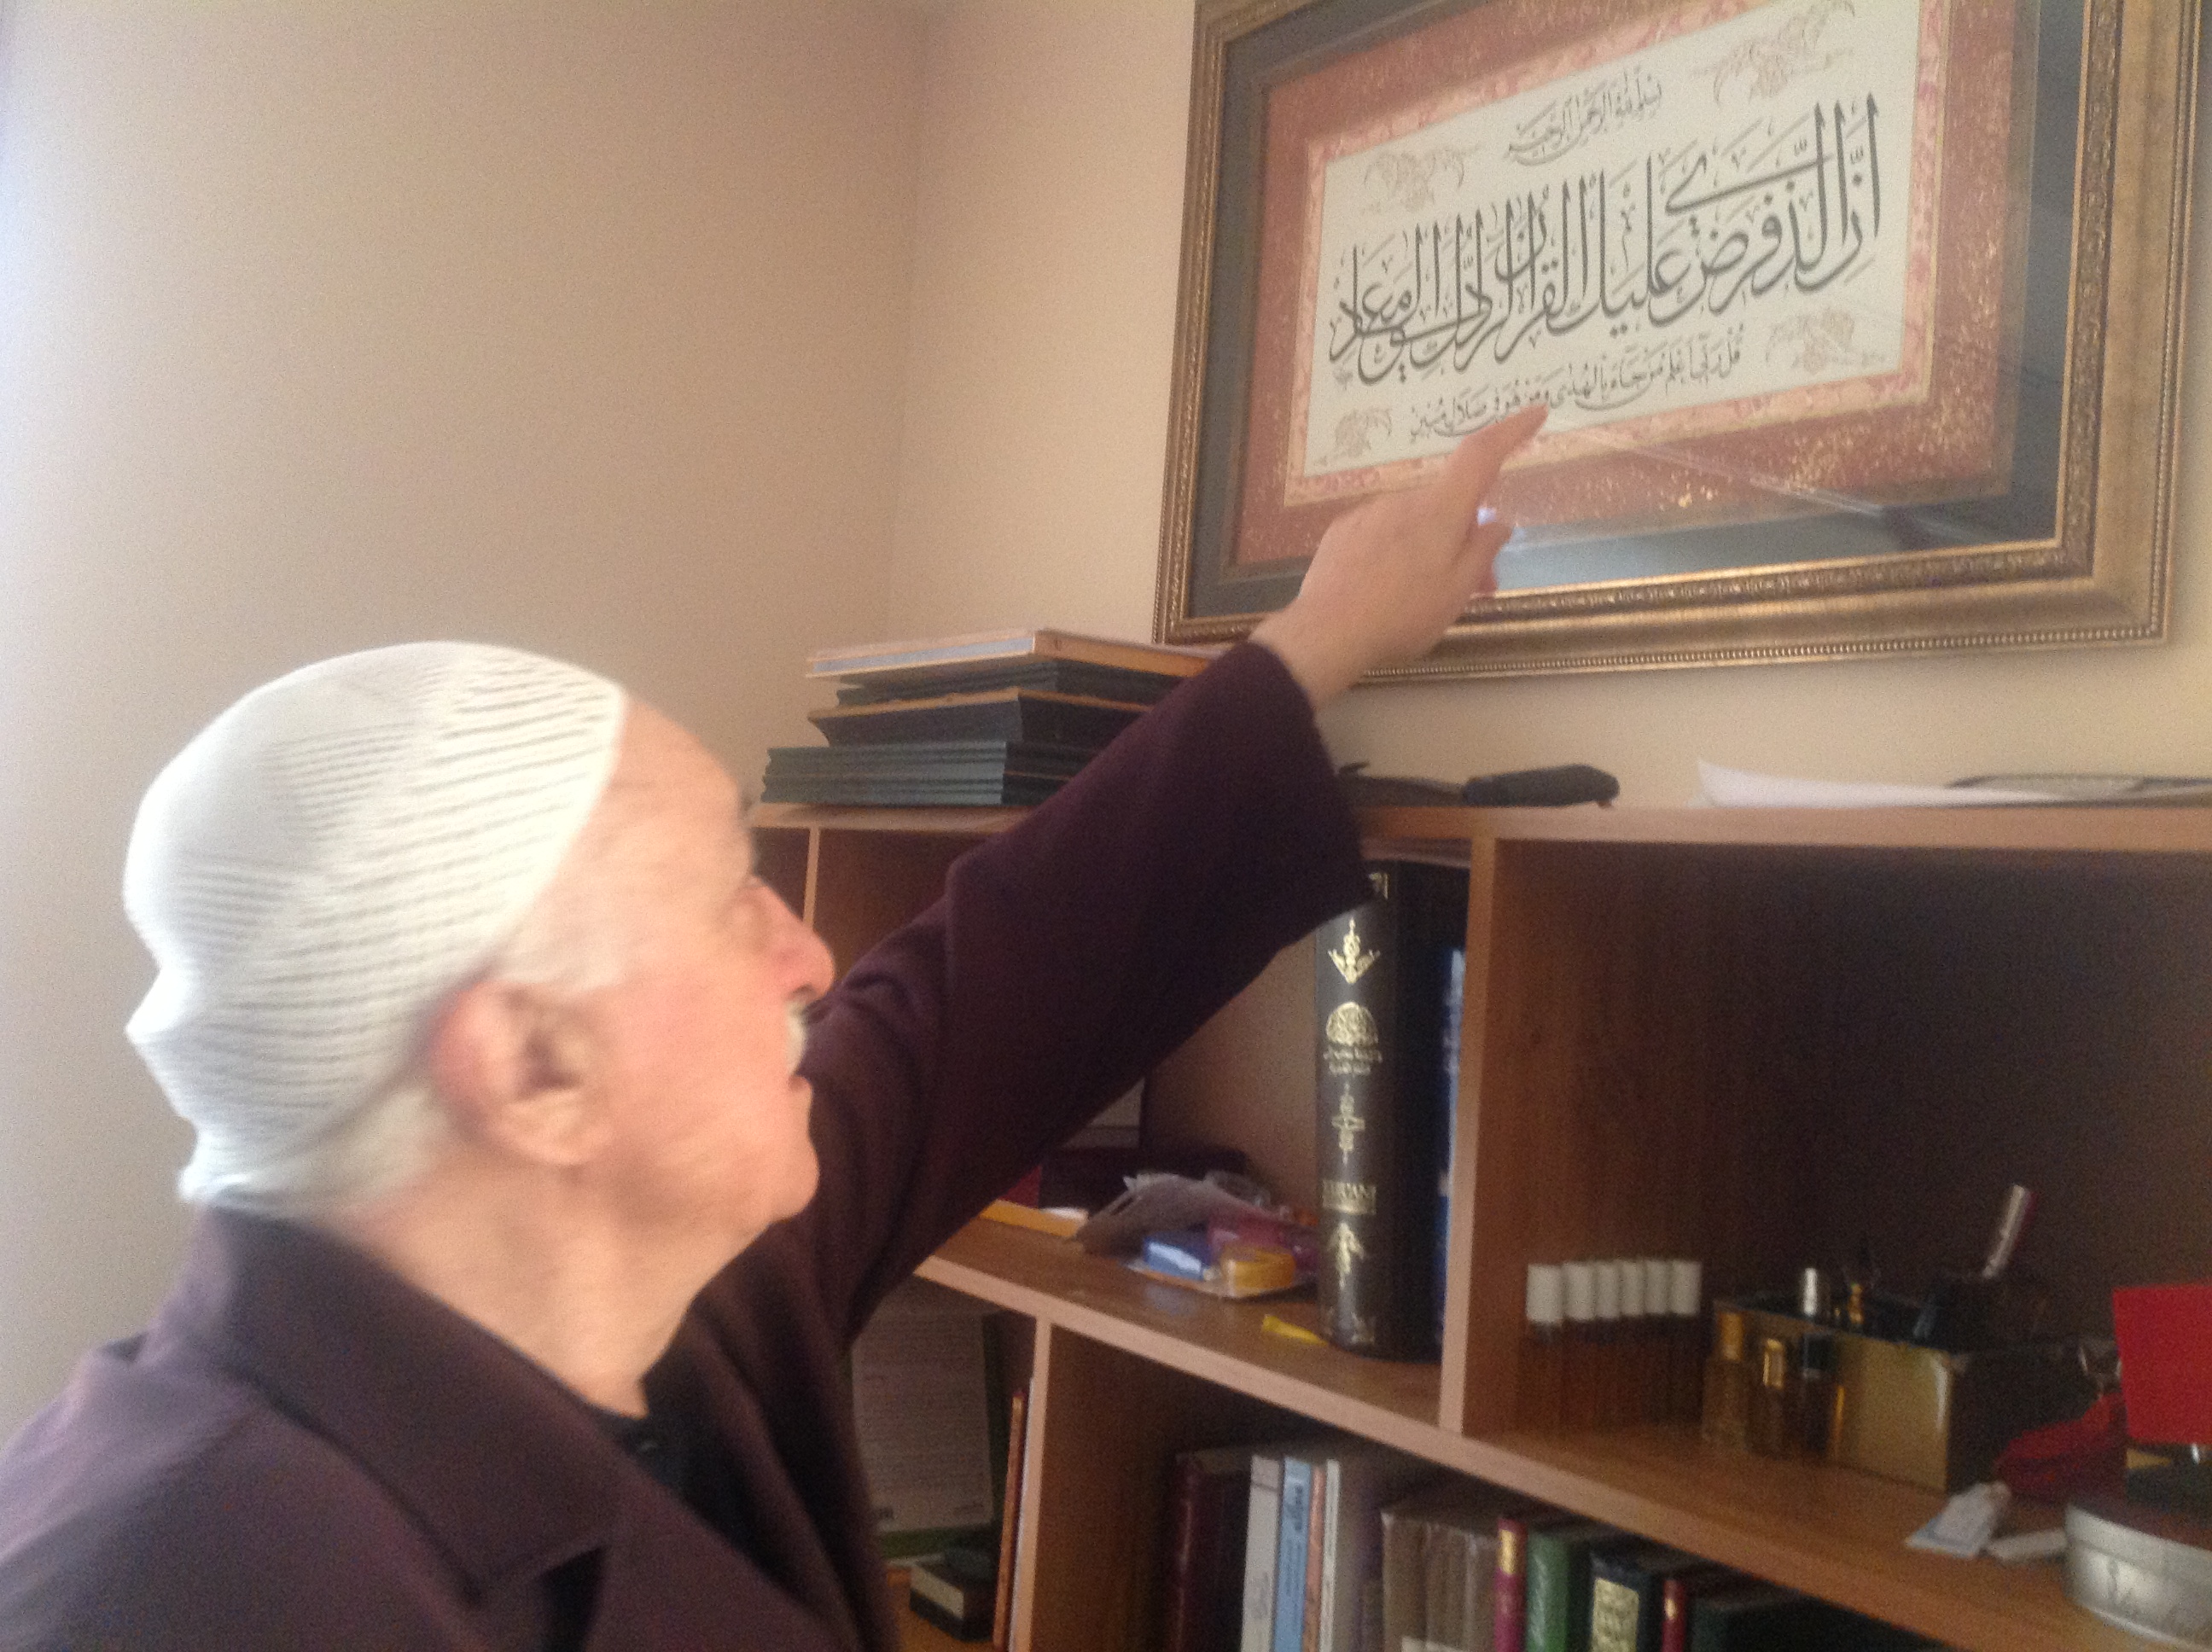 بسم الله الرحمن الرحيم
إن الذي فرض عليك القرآن لرادك إلى معاد
قل ربي أعلم من جاء بالهدى ومن هو في ضلال مبين